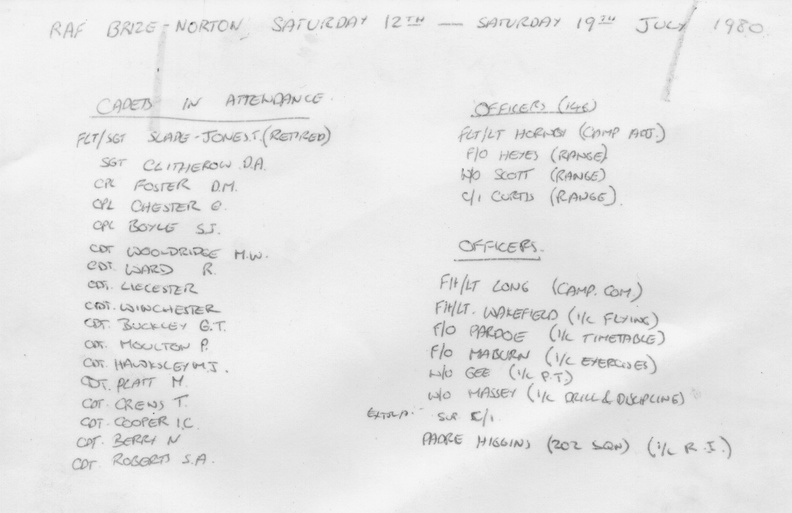 RAF BRIZE-NORTON SATURDAY 12TH — SATURDAY 19TH JULY 1980
CADETS IN ATTENDANCE.
FLT/SGT SLAPE-JONES T. (RETIRED)
SGT CLITHEROW D.A.
CPL FOSTER D.M.
CPL CHESTER G.
CPL BOYLE S.J.
CDT WOOLDRIDGE M.W.
CDT. WARD R.
CDT. LIECESTER
CDT. WINCHESTER
CDT. BUCKLEY G.T.
CDT. MOULTON P.
CDT. HAWKSLEY M.J.
CDT. PLATT M.
CDT. CREWS T.
CDT. COOPER I.C.
CDT. BERRY N
CDT. ROBERTS S.A.
OFFICERS (146)
FLT/LT HORNBY (CAMP ADJ.)
F/O HEYES (RANGE)
W/O SCOTT (RANGE)
C/I CURTIS (RANGE)
OFFICERS.
Flt/LT LONG (CAMP. COM)
Flt/LT. WAKEFIELD (I/C FLYING)
F/O PARDOE (I/C TIMETABLE)
F/O MABURN (I/C EXERCISES)
W/O GEE (I/C P.T)
W/O MASSEY (I/C DRILL & DISCIPLINE)
EXTRA. C/I.
PADRE HIGGINS (202 SQN) (I/C R.I.)